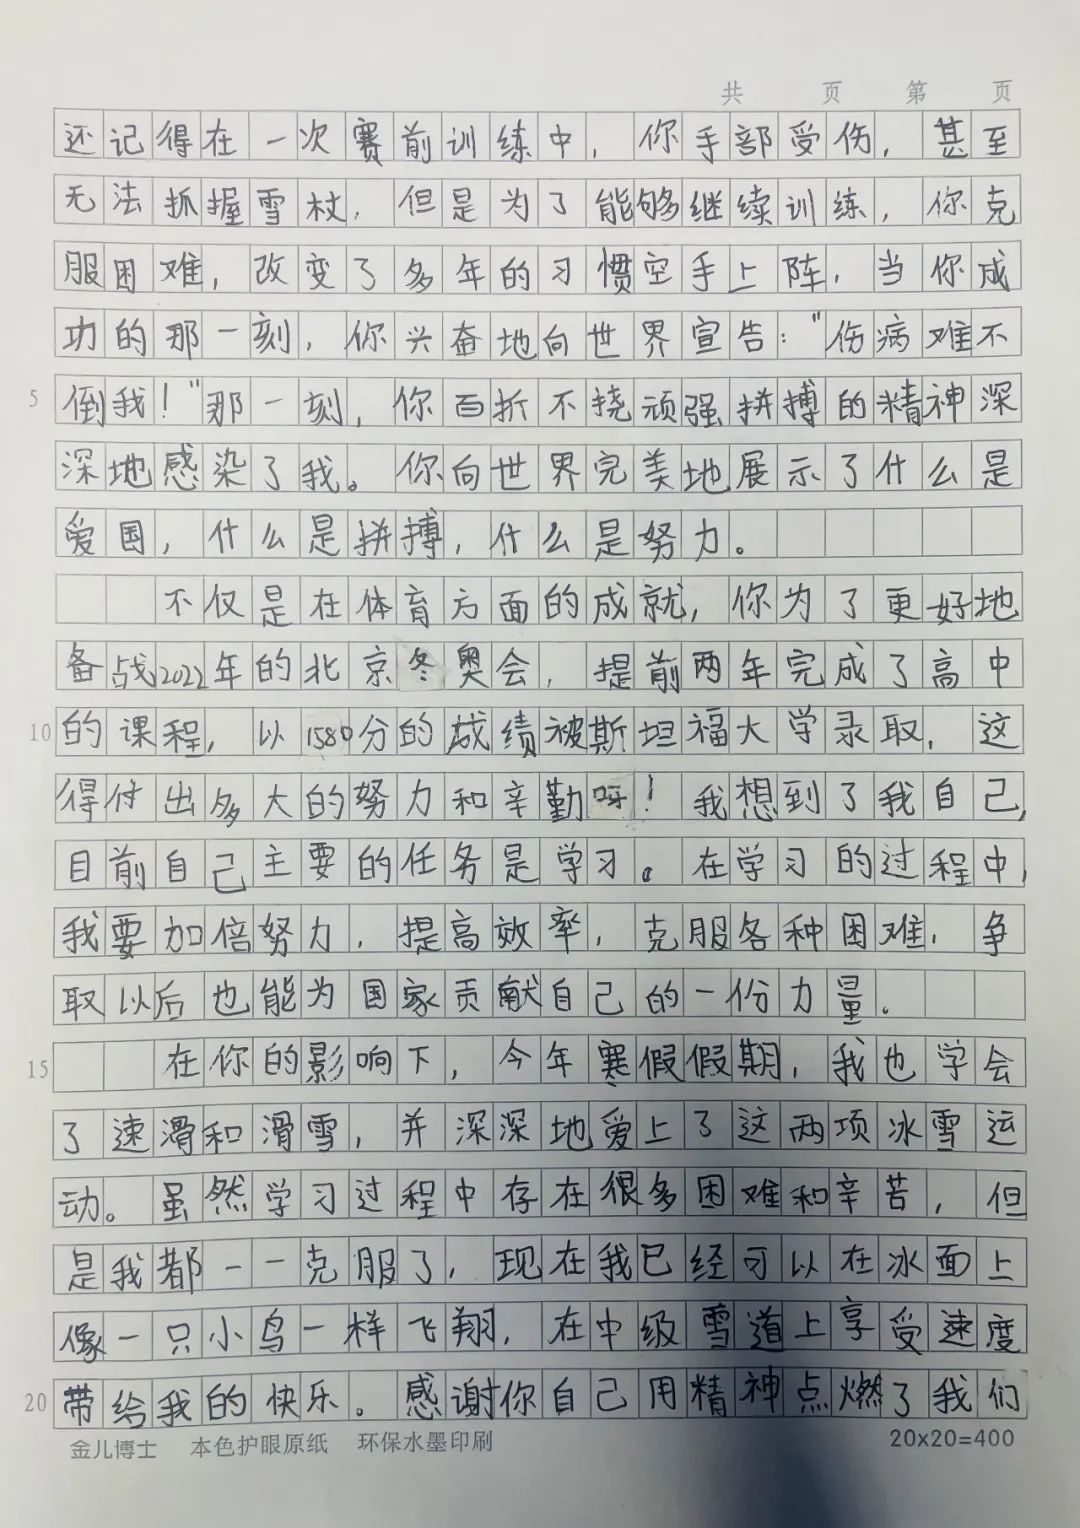 共 页 第 页
还记得在一次赛前训练中，你手部受伤，甚至
无法抓握雪杖，但是为了能够继续训练，你克
服困难，改变了多年的习惯空手上阵，当你成
功的那一刻，你兴奋地向世界宣告：“伤病难不
5 倒我！”那一刻，你百折不挠顽强拼搏的精神深
深地感染了我。你向世界完美地展示了什么是
爱国，什么是拼搏，什么是努力。
不仅是在体育方面的成就，你为了更好地
备战2022年的北京冬奥会，提前两年完成了高中
10 的课程，以1580分的成绩被斯坦福大学录取，这
得付出多大的努力和辛勤呀！我想到了我自己，
目前自己主要的任务是学习。在学习的过程中，
我要加倍努力，提高效率，克服各种困难，争
取以后也能为国家贡献自己的一份力量。
15 在你的影响下，今年寒假假期，我也学会
了速滑和滑雪，并深深地爱上了这两项冰雪运
动。虽然学习过程中存在很多困难和辛苦，但
是我都一一克服了，现在我已经可以在冰面上
像一只小鸟一样飞翔，在中级雪道上享受速度
20 带给我的快乐。感谢你自己用精神点燃了我们
金儿博士 本色护眼原纸 环保水墨印刷 20x20=400